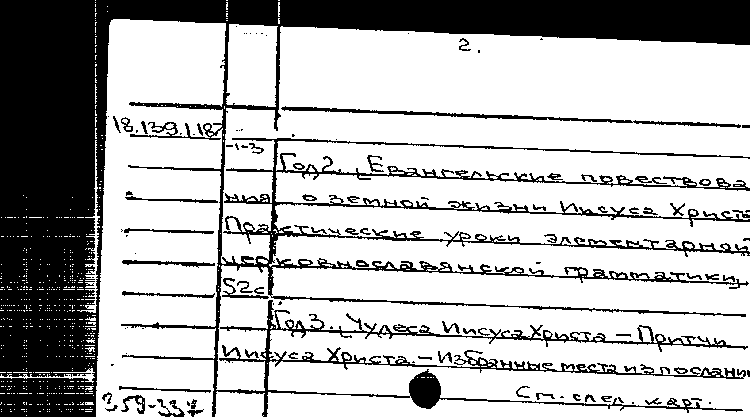 2.
18.139.1.187
-1-3
Год 2. Евангельские повествова
ния о земной жизни Иисуса Христа
Практические уроки элементарной
церковнославянской грамматики,
52с
Год 3. Чудеса Иисуса Христа – Притчи
Иисуса Христа. – Избранные места из послани
См. след. карт.
359-337